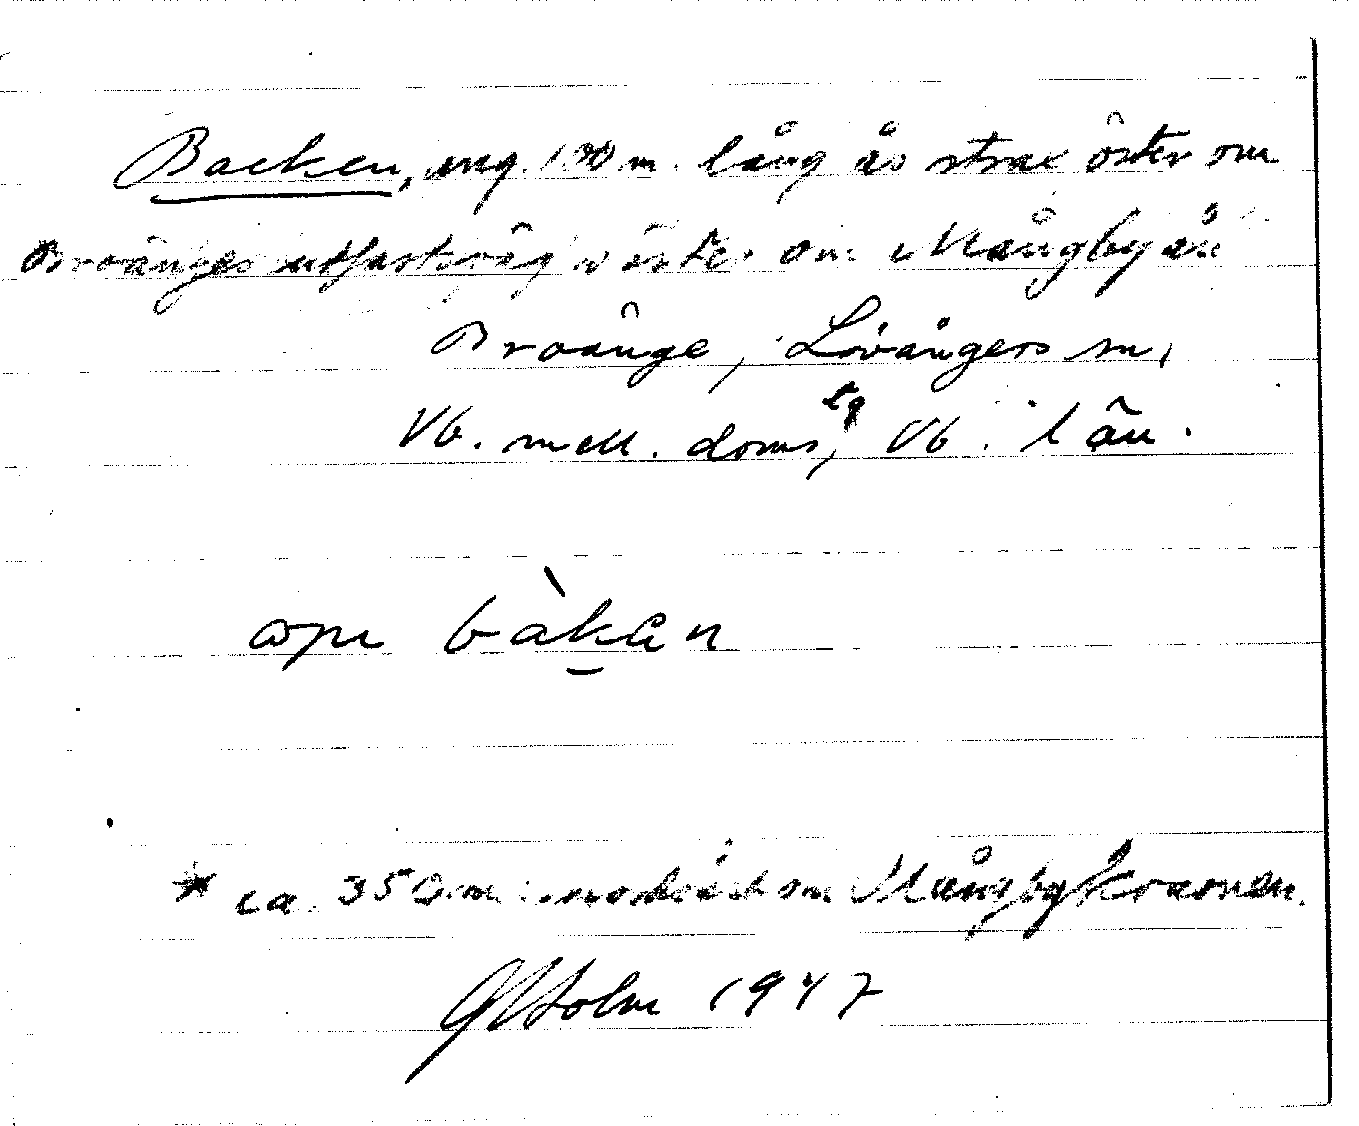 Backen, ung. 100 m. lång ås strax öster om
Broänges utfartsväg väster om Mångbyån
Broänge, Lövångers sn,
Vb. mell. doms, Vb. län.
bàken
* ca. 350 m. nordväst om Mångbykvarnen.
G Holm 1947